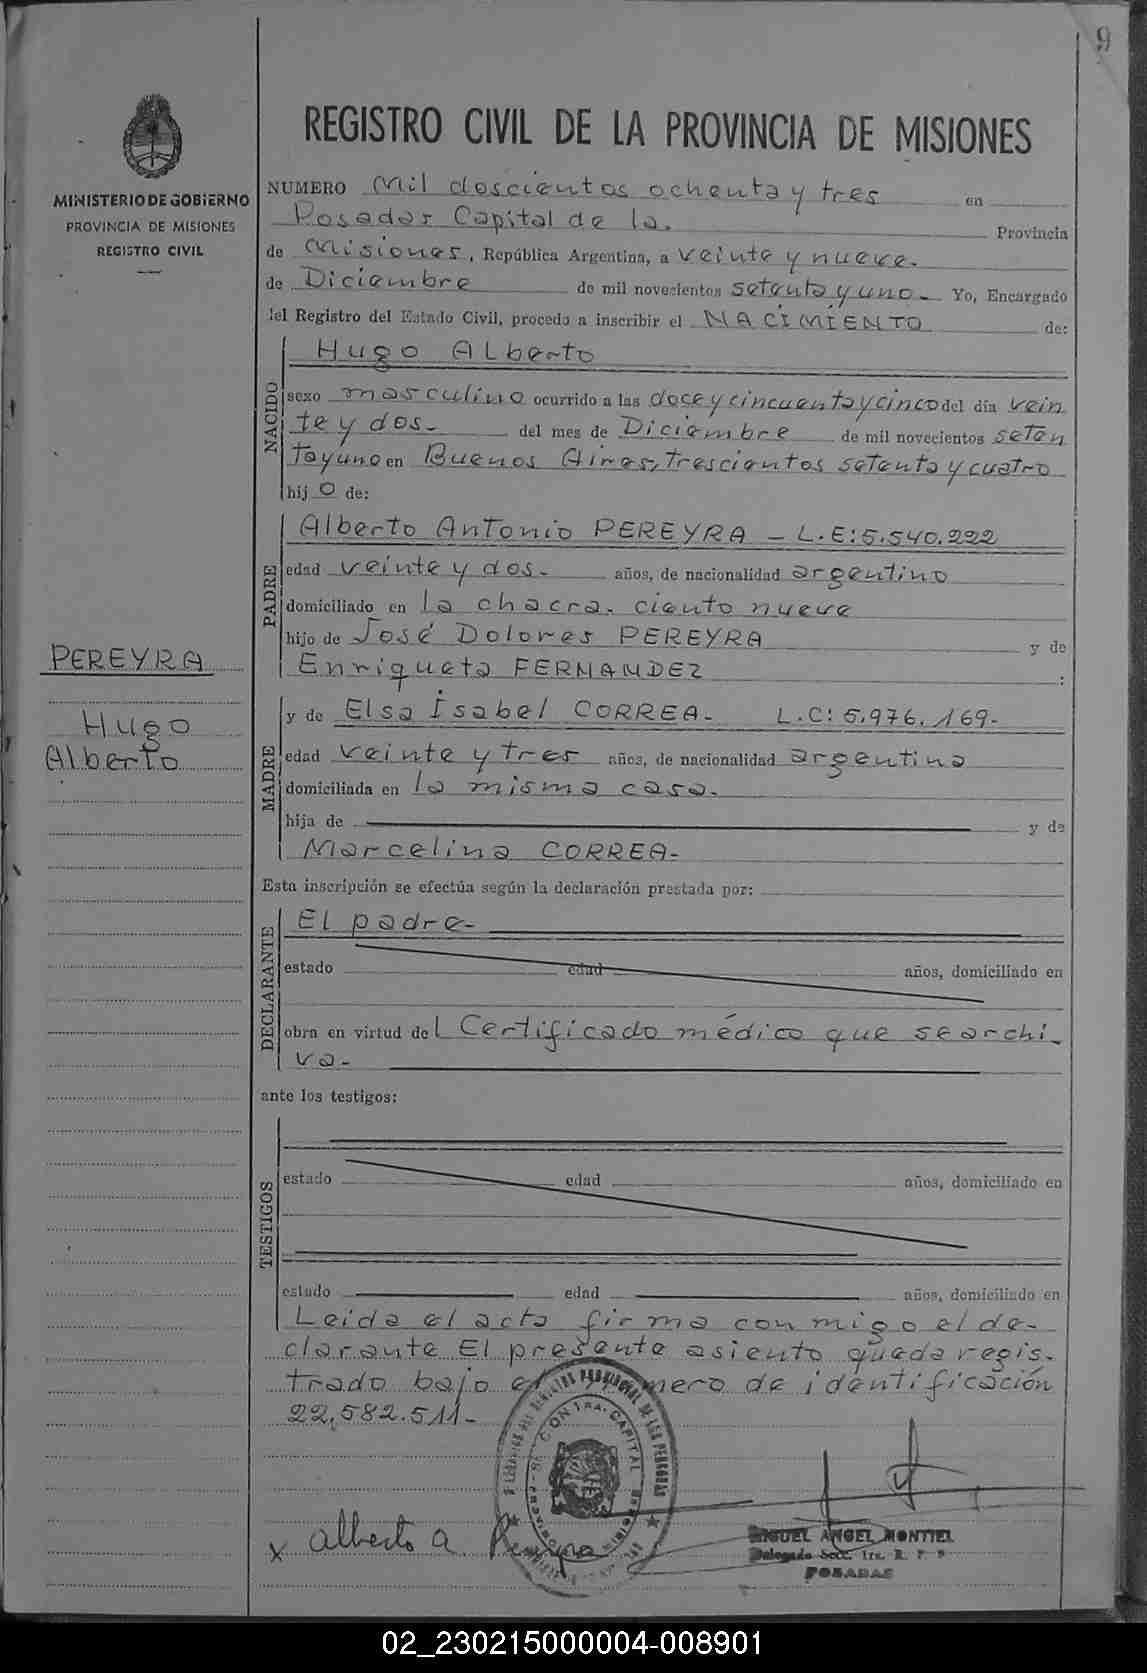 9
REGISTRO CIVIL DE LA PROVINCIA DE MISIONES
MINISTERIO DE GOBIERNO
PROVINCIA DE MISIONES
REGISTRO CIVIL
NUMERO Mil doscientos ochenta y tres en
Posadas Capital de la. Provincia
de Misiones, República Argentina, a veinte y nueve.
de Diciembre de mil novecientos setenta y uno. Yo, Encargado
del Registro del Estado Civil, procedo a inscribir el NACIMIENTO de:
NACIDO
Hugo Alberto
sexo masculino ocurrido a las doce y cincuenta y cinco del día vein
te y dos. del mes de Diciembre de mil novecientos seten
ta y uno en Buenos Aires, trescientos setenta y cuatro
hij o de:
PADRE
Alberto Antonio PEREYRA - L.E: 5.540.222
edad veinte y dos. años, de nacionalidad argentino
domiciliado en la chacra. ciento nueve
hijo de José Dolores PEREYRA y de
Enriqueta FERNANDEZ :
PEREYRA
Hugo
Alberto
MADRE
y de Elsa Isabel CORREA. L.C: 5.976.169-
edad veinte y tres años, de nacionalidad argentina
domiciliada en la misma casa.
hija de y de
Marcelina CORREA-
Esta inscripción se efectúa según la declaración prestada por:
DECLARANTE
El padre-
estado edad años, domiciliado en
obra en virtud del Certificado médico que se archi-
va-
ante los testigos:
TESTIGOS
estado edad años, domiciliado en
estado edad años, domiciliado en
Leida el acta firma conmigo el de-
clarante El presente asiento queda regis-
trado bajo el número de identificación
22.582.511-
x Alberto A. Pereyra
MIGUEL ANGEL MONTIEL
Delegado Secc. 1ra. R. P. P.
POSADAS
02_230215000004-008901